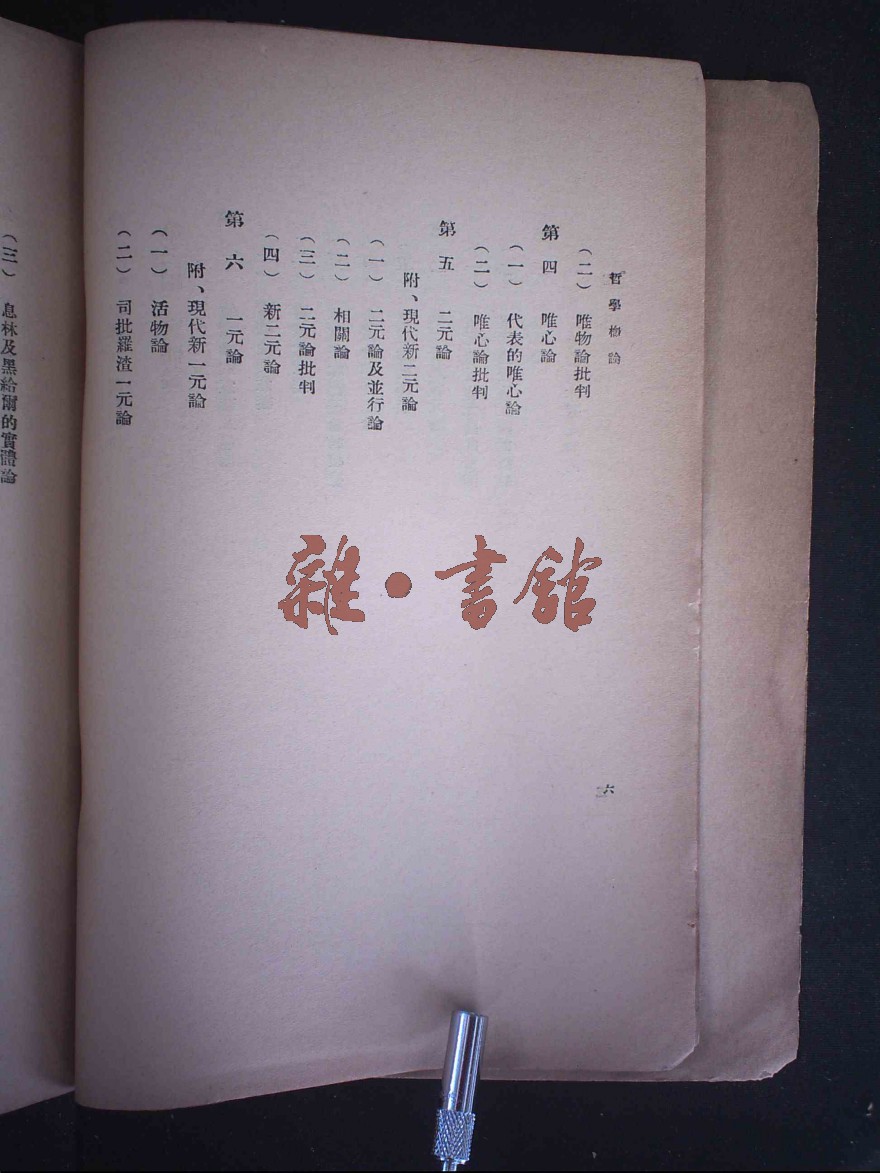 哲學概論
（二） 唯物論批判
第四 唯心論
（一） 代表的唯心論
（二） 唯心論批判
第五 二元論
附、現代新二元論
（一） 二元論及並行論
（二） 相關論
（三） 二元論批判
（四） 新二元論
第六 一元論
附、現代新一元論
（一） 活物論
（二） 司批羅渣一元論
六
（三） 息林及黑給爾的實體論
雜·書館